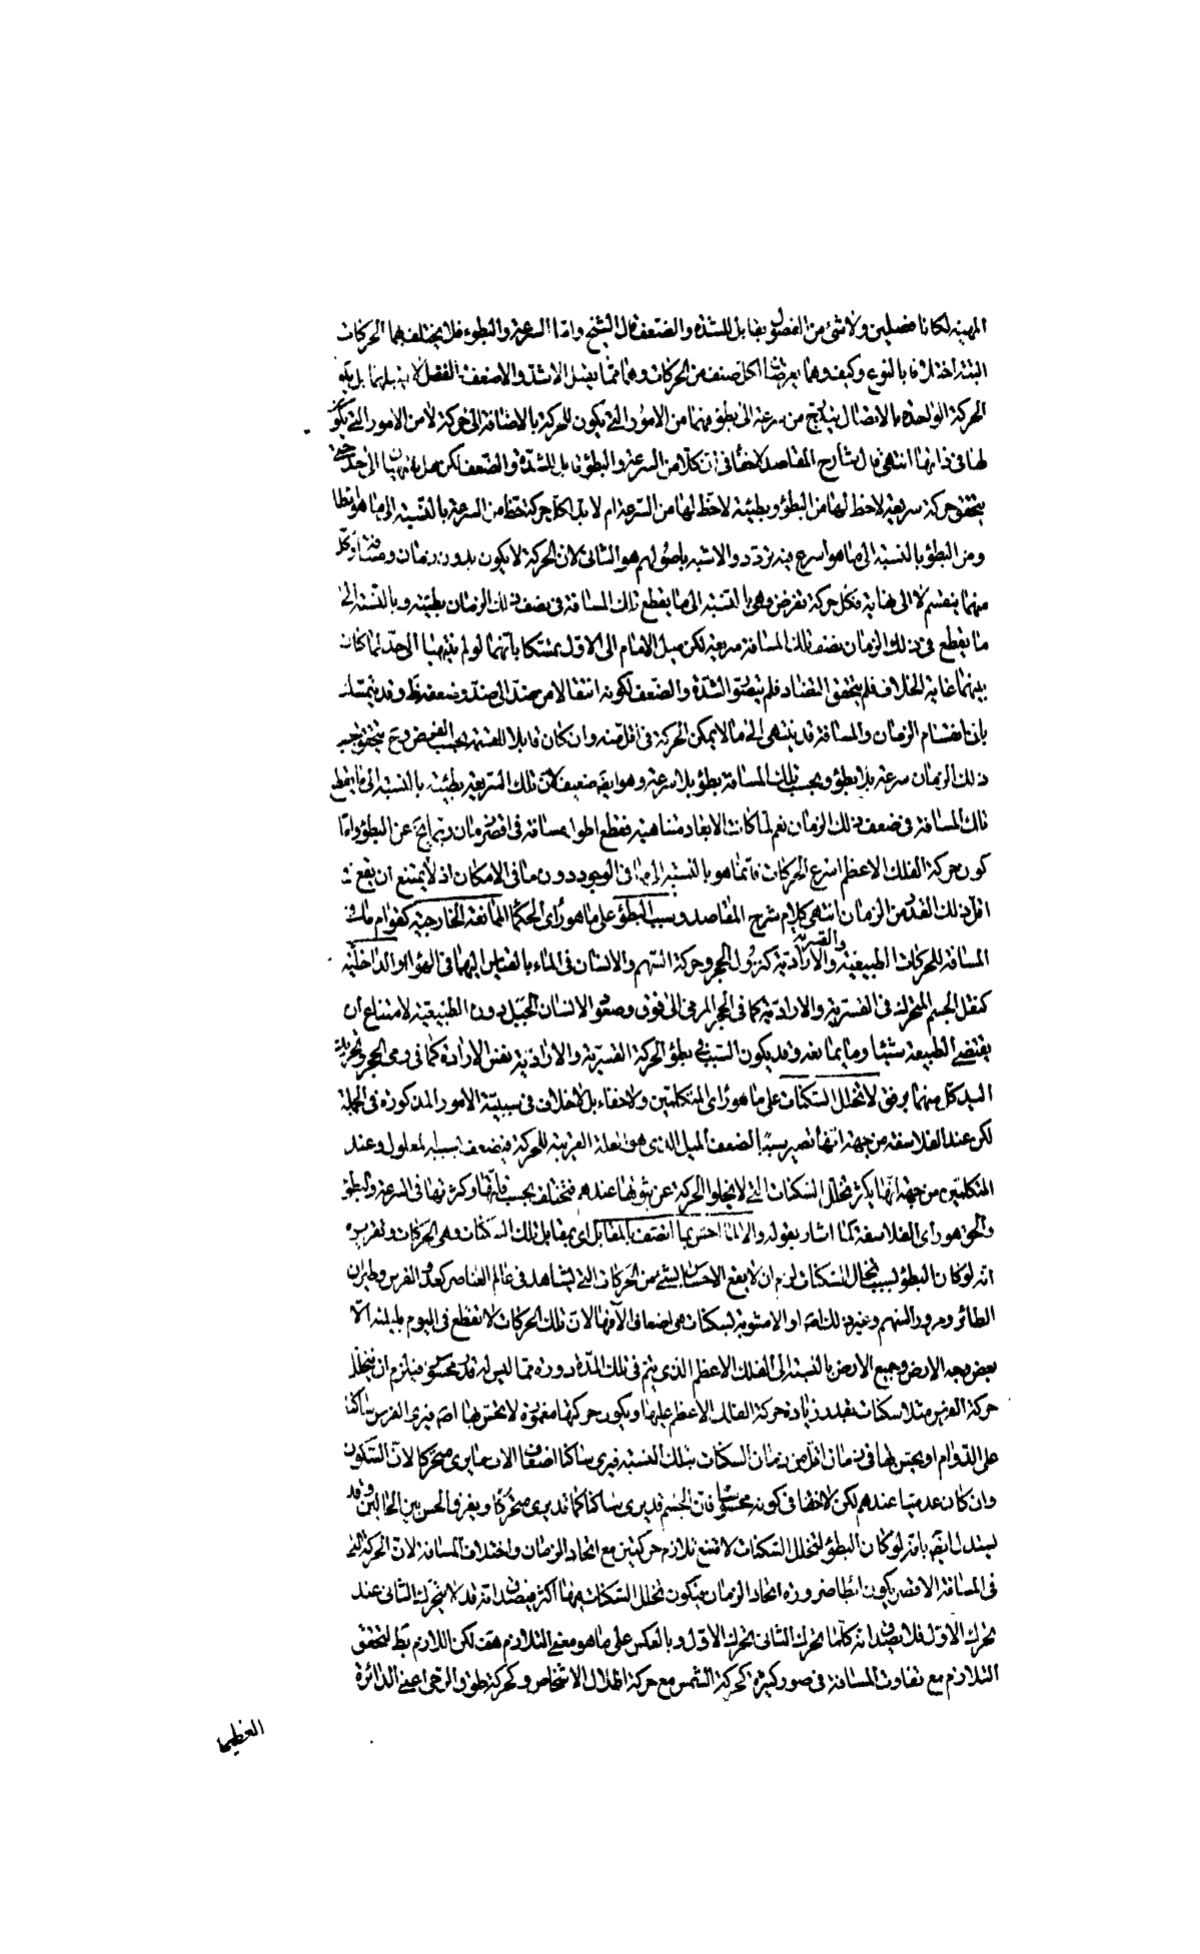 المهية لكانا فصلين ولا شئ من الفصول بقابل للشدة والضعف قال الشيخ واما السرعة والبطوء فلا يختلف بهما الحركات
البتة اختلافا بالنوع وكيف وهما يعرضان لكل صنف من الحركات وهما مما يقبل الاشد والاضعف والفصل لا يقبلهما بل يكو
الحركة الواحدة بالاتصال يتدرج من سرعة الى بطؤ فهما من الامور التي يكون للحركة بالاضافة الى حركة لا من الامور التي يكون
لها في ذاتها انتهى قال شارح المقاصد لا خفأ في ان كلا من السرعة والبطؤ قابل للشدة والضعف لكن هل ينتهيان الى حد حتى
يتحقق حركة سريعة لا حظ لها من البطؤ وبطيئة لا حظ لها من السرعة ام لا بل لكل حركة حظ من السرعة بالنسبة الى ما هو ابطا
ومن البطؤ بالنسبة الى ما هو اسرع فيه تردد والاشبه باصولهم هو الثاني لان الحركة لا يكون بدون زمان ومسافة وكل
منهما ينقسم لا الى نهاية فكل حركة تفرض وهي بالنسبة الى ما يقطع تلك المسافة في نصف ذلك الزمان بطيئة وبالنسبة الى
ما يقطع في ذلك الزمان نصف تلك المسافة سريعة لكن ميل الامام الى الاول تمسكا بانهما لو لم ينتهيا الى حد لما كان
بينهما غاية الخلاف فلم يتحقق التضاد فلم يتصور الشدة والضعف لكونه انتقالا من ضد الى ضد وضعفه ظ وقد يتمسك
بان انقسام الزمان والمسافة قد ينتهي الى ما لا يمكن الحركة في اقل منه وان كان قابلا للقسمة بحسب الفرض وح يتحقق بحسب
ذلك الزمان سرعة بلا بطؤ وبحسب تلك المسافة بطؤ بلا سرعة وهو ايضا ضعيف لان تلك السريعة بطيئة بالنسبة الى ما يقطع
تلك المسافة في ضعف ذلك الزمان نعم لما كانت الابعاد متناهية فقطع اطول مسافة في اقصر زمان ربما يخ عن البطؤ واما
كون حركة الفلك الاعظم اسرع الحركات فانما هو بالنسبة الى ما في الوجود دون ما في الامكان اذ لا يمتنع ان يقع في
اقل ذلك القدر من الزمان انتهى كلام شرح المقاصد وسبب البطؤ على ما هو رأى الحكما الممانعة الخارجية كقوام ما في
المسافة للحركات الطبيعية والقسرية والارادية كنزول الحجر وحركة السهم والانسان في الماء بالقياس اليهما في الهواء والداخلية
كثقل الجسم المتحرك في القسرية والارادية كما في الحجر المرمي الى فوق وصعود الانسان الجبل دون الطبيعية لامتناع ان
يقتضي الطبيعة شيئا وما يمانعه وقد يكون السبب في بطؤ الحركة القسرية والارادية نفس الارادة كما في رمي الحجر وتحريك
اليد كل منهما برفق لا تخلل السكنات على ما هو رأى المتكلمين ولا خفاء بل لا خلاف في سببية الامور المذكورة في الجملة
لكن عند الفلاسفة من جهة انها تصير سببا لضعف الميل الذي هو العلة القريبة للحركة فيضعف بسببه المعلول وعند
المتكلمين من جهة انها يكثر تخلل السكنات التي لا يخلو الحركة عن شوبها عندهم فتختلف بحسب قلتها وكثرتها في السرعة والبطؤ
والحق هو رأى الفلاسفة كما اشار بقوله والا لما احس بما اتصف بالمقابل اى بمقابل تلك السكنات وهي الحركات وتقريره
انه لو كان البطؤ لسبب تخلل السكنات لزم ان لا يقع الاحساس بشئ من الحركات التي تشاهد في عالم العناصر كعدو الفرس وطيران
الطائر ومرور السهم وغير ذلك او الا مشوبة بسكنات هي اضعاف الآفها لان تلك الحركات لا تقطع في اليوم بليلته الا
بعض وجه الارض وجميع الارض بالنسبة الى الفلك الاعظم الذي يتم في تلك المدة دورة مما ليس له قدر محسوس فيلزم ان يتخلل
حركة الفرس مثلا سكنات بقدر زيادة حركة الفلك الاعظم عليها ويكون حركتها مغمورة لا يحس بها اصلا فيرى الفرس ساكنا
على الدوام او يحس بها في زمان اقل من زمان السكنات بتلك النسبة فيرى ساكنا اضعاف الاف ما يرى متحركا لان السكون
وان كان عدميا عندهم لكن لا خفا في كونه محسوسا فان الجسم قد يرى ساكنا كما قد يرى متحركا ويفرق الحس بين الحالين وقد
يستدل ايضا بانه لو كان البطؤ لتخلل السكنات لامتنع تلازم حركتين مع اتحاد الزمان واختلاف المسافة لان الحركة التي
في المسافة الاقصر يكون ابطا ضرورة اتحاد الزمان فيكون تخلل السكنات فيها اكثر فيصدق انه قد لا يتحرك الثاني عند
تحرك الاول فلا يصدق انه كلما تحرك الثاني تحرك الاول وبالعكس على ما هو معنى التلازم هف لكن اللازم بط لتحقق
التلازم مع تفاوت المسافة في صور كثيرة كحركة الشمس مع حركة اظلال الاشخاص وكحركة طوق الرحى اعني الدائرة
العظيما